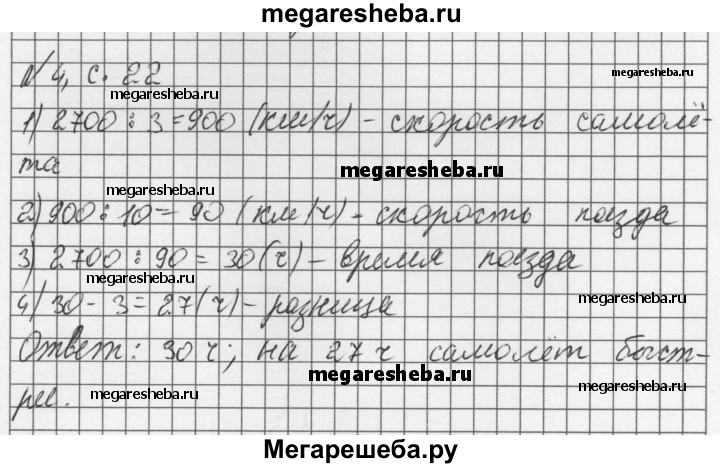 megaresheba.ru
№ 4, с. 22
megaresheba.ru
megaresheba.ru
1) 2700 : 3 = 900 (км/ч) - скорость самолё-
та
megaresheba.ru
megaresheba.ru
2) 900 : 10 = 90 (км/ч) - скорость поезда
3) 2700 : 90 = 30 (ч) - время поезда
megaresheba.ru
megaresheba.ru
4) 30 - 3 = 27 (ч) - разница
Ответ: 30 ч; на 27 ч самолёт быст-
megaresheba.ru
рее.
megaresheba.ru
megaresheba.ru
Мегарешеба.ру